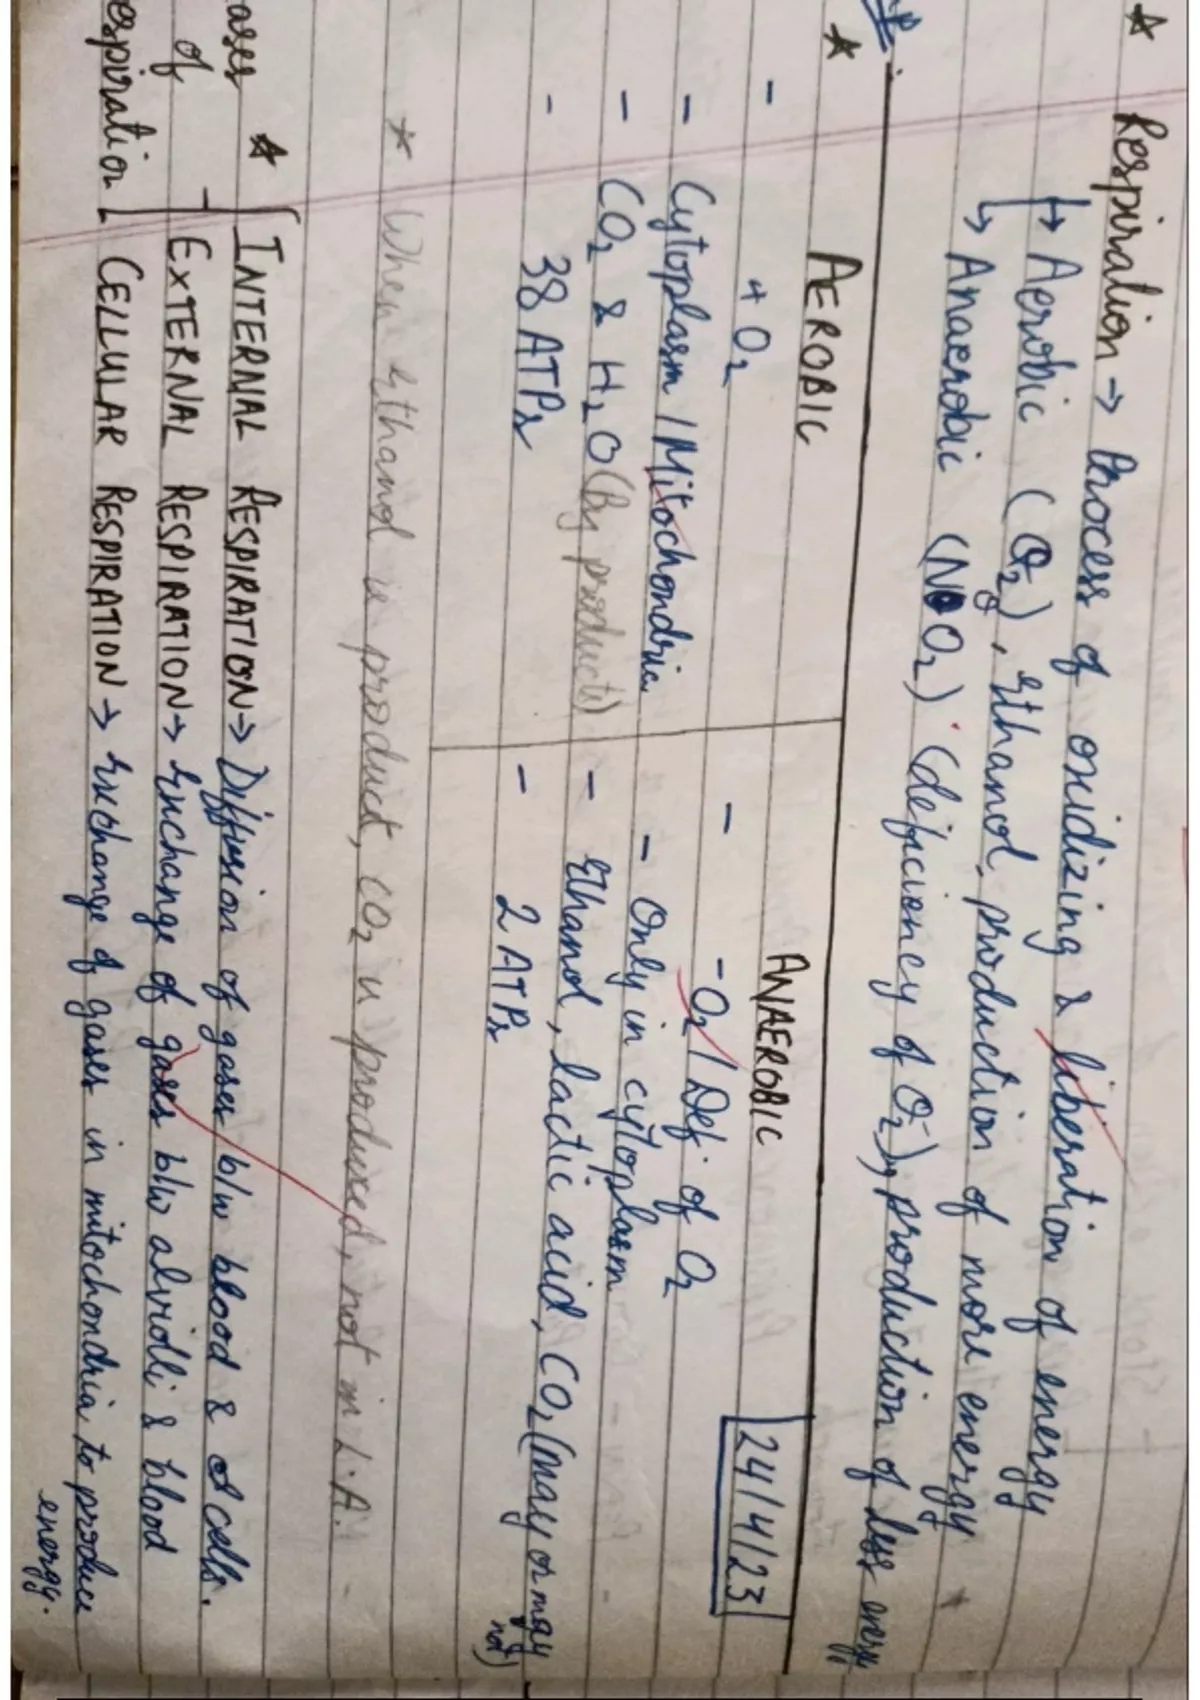 ★ Respiration → Process of oxidizing & liberation of energy
↳ Aerobic (O2), Ethanol, production of more energy
↳ Anaerobic (NO O2) (deficiency of O2), production of less energy
24/4/23
★ AEROBIC ANAEROBIC
- + O2 - -O2 / Def. of O2
- Cytoplasm / Mitochondria - Only in cytoplasm
- CO2 & H2O (By products) - Ethanol, lactic acid, CO2 (may or may not)
- 38 ATPs - 2 ATPs
* When Ethanol is product, CO2 is produced, not in L.A.
ases of espiration
★ INTERNAL RESPIRATION → Diffusion of gases b/w blood & cells.
EXTERNAL RESPIRATION → Exchange of gases b/w alviolli & blood
CELLULAR RESPIRATION → Exchange of gases in mitochondria to produce energy.